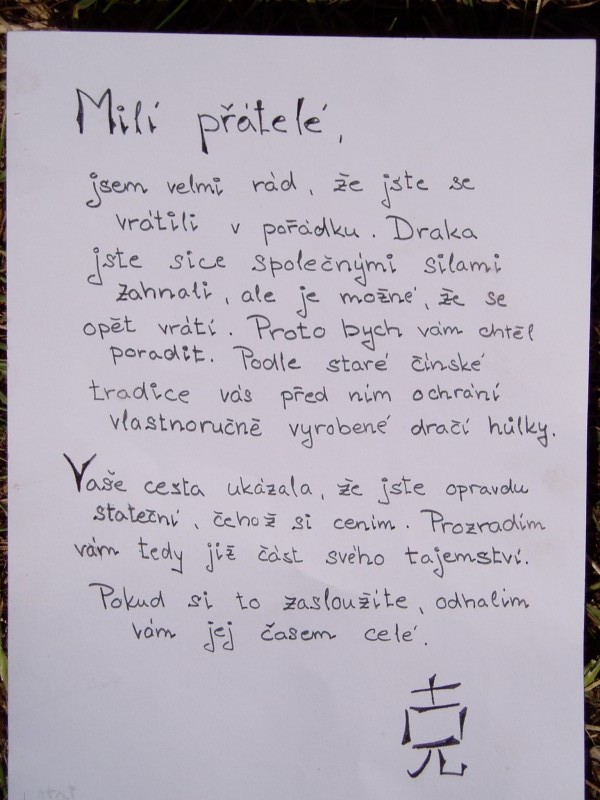 Milí přátelé,
jsem velmi rád, že jste se
vrátili v pořádku. Draka
jste sice společnými silami
zahnali, ale je možné, že se
opět vrátí. Proto bych vám chtěl
poradit. Podle staré čínské
tradice vás před ním ochrání
vlastnoručně vyrobené dračí hůlky.
Vaše cesta ukázala, že jste opravdu
stateční, čehož si cením. Prozradím
vám tedy již část svého tajemství.
Pokud si to zasloužíte, odhalím
vám jej časem celé.
克